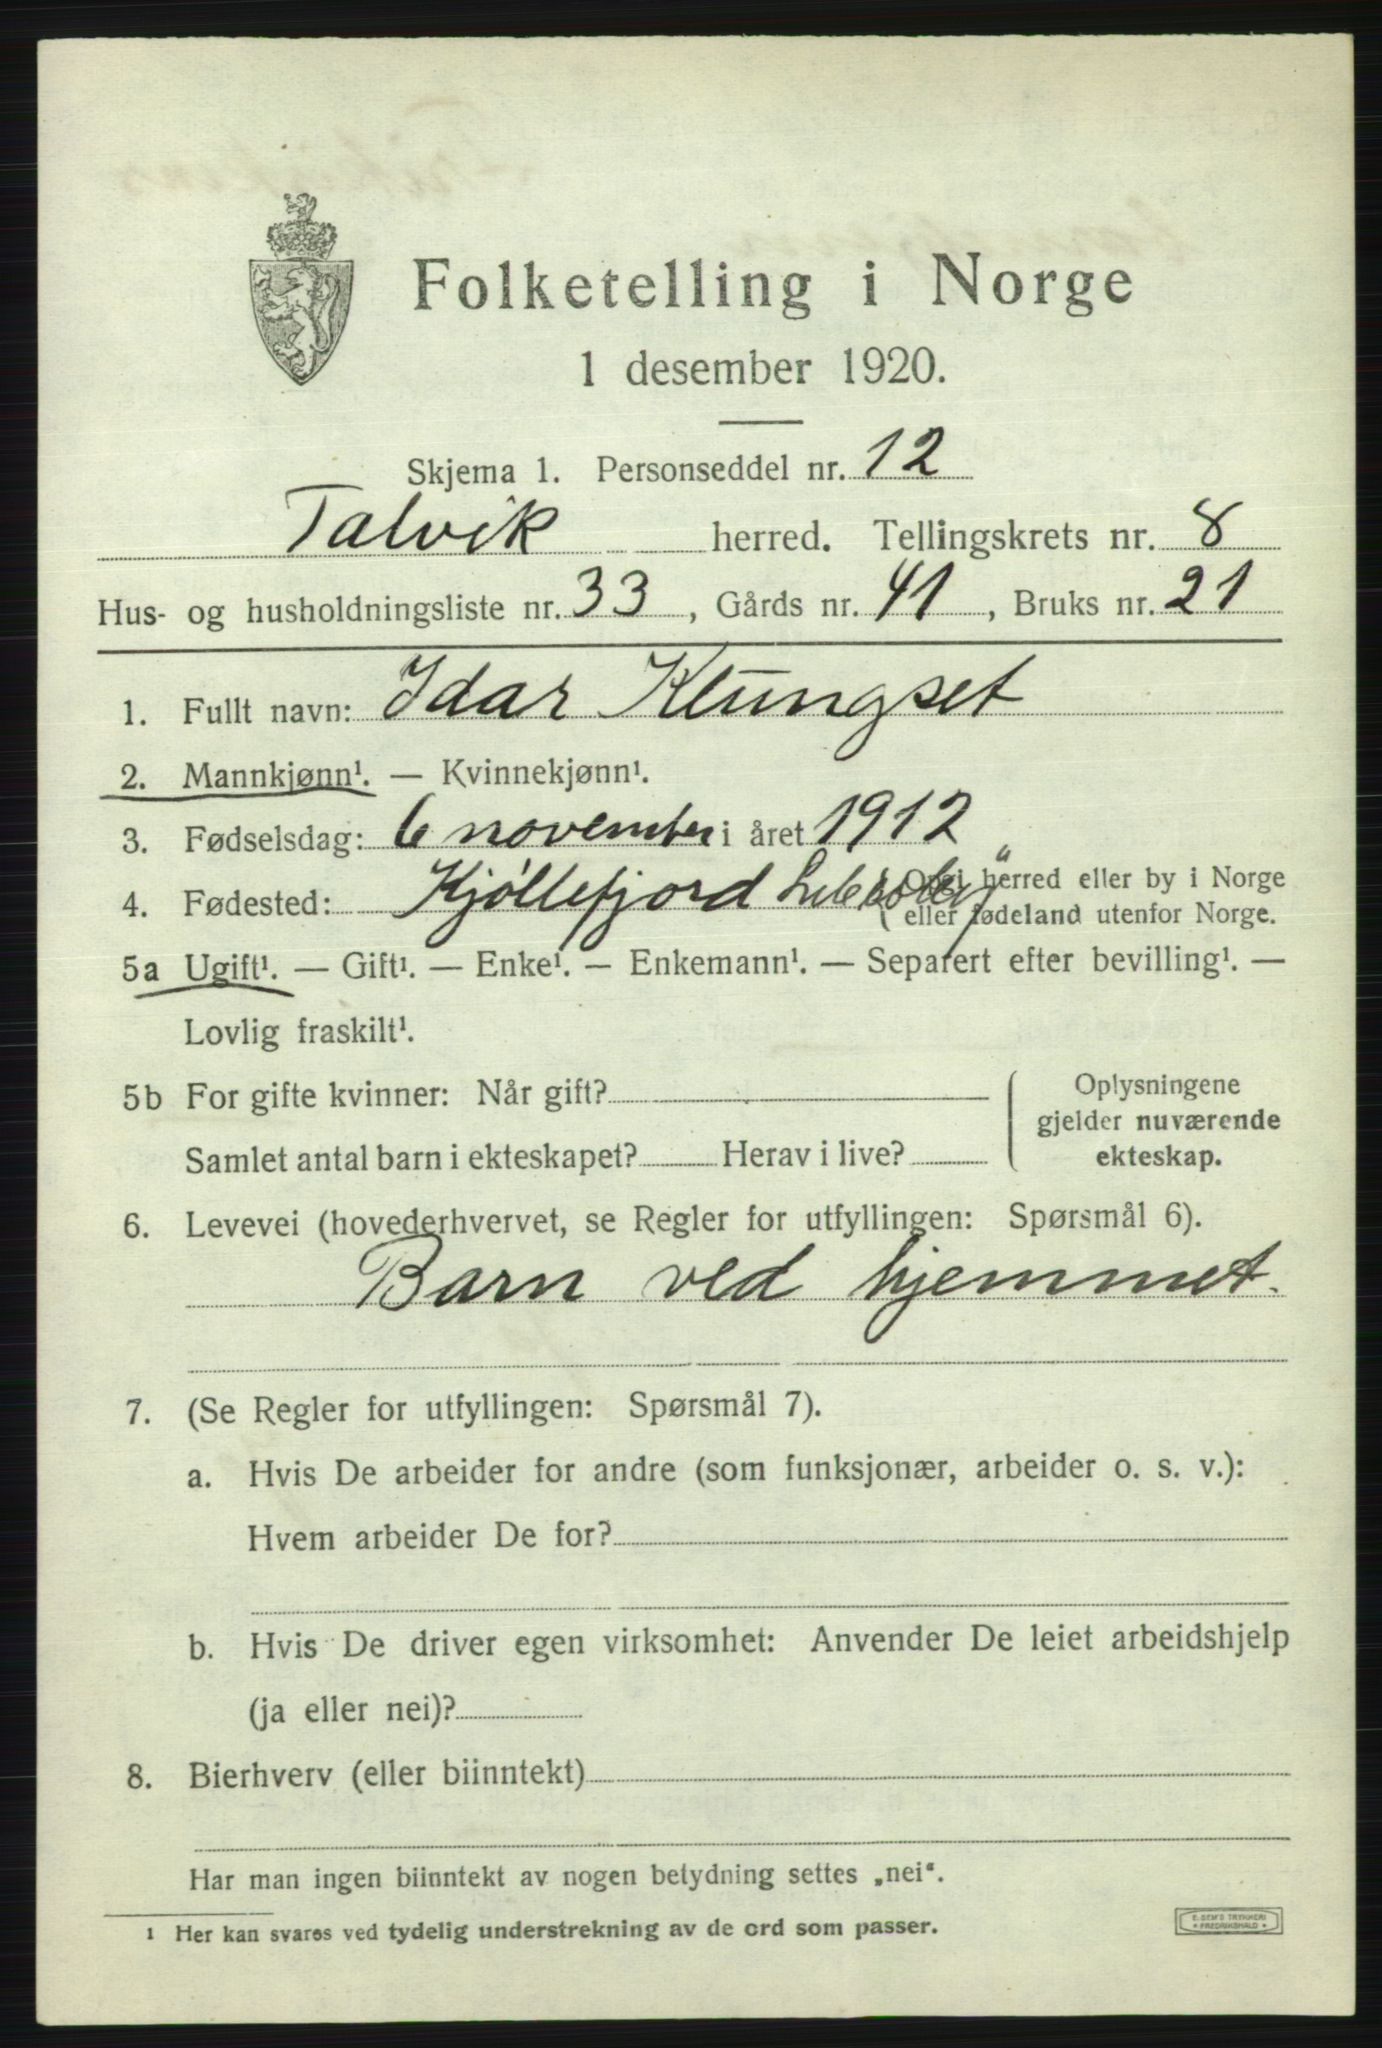 Folketelling i Norge
1 desember 1920.
Skjema 1. Personseddel nr. 12
Talvik herred. Tellingskrets nr. 8
Hus- og husholdningsliste nr. 33, Gårds nr. 41, Bruks nr. 21
1. Fullt navn: Idar Klungset
2. Mannkjønn¹. — Kvinnekjønn¹.
3. Fødselsdag: 6 november i året 1912
4. Fødested: Kjøllefjord Lebesby (Opgi herred eller by i Norge
eller fødeland utenfor Norge.
5a Ugift¹. — Gift¹. — Enke¹. — Enkemann¹. — Separert efter bevilling¹. —
Lovlig fraskilt¹.
5b For gifte kvinner: Når gift?
Samlet antal barn i ekteskapet? Herav i live?
Oplysningene
gjelder nuværende
ekteskap.
6. Levevei (hovederhvervet, se Regler for utfyllingen: Spørsmål 6).
Barn ved hjemmet.
7. (Se Regler for utfyllingen: Spørsmål 7).
a. Hvis De arbeider for andre (som funksjonær, arbeider o. s. v.):
Hvem arbeider De for?
b. Hvis De driver egen virksomhet: Anvender De leiet arbeidshjelp
(ja eller nei)?
8. Bierhverv (eller biinntekt)
Har man ingen biinntekt av nogen betydning settes „nei“.
1 Her kan svares ved tydelig understrekning av de ord som passer.
E. SEM'S TRYKKERI
FREDRIKSHALD